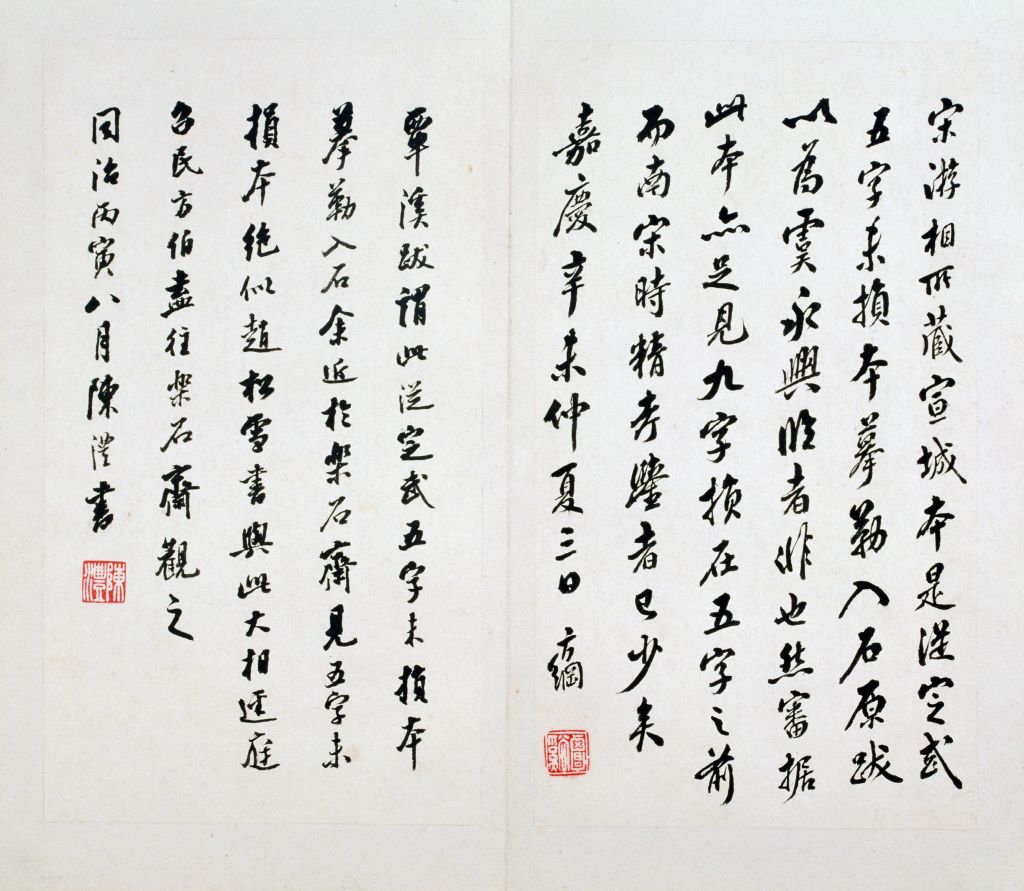 宋游相所藏宣城本是從定武
五字未損本摹勒入石原跋
以為虞永興臨者非也然審據
此本亦足見九字損在五字之前
而南宋時精考鑒者已少矣
嘉慶辛未仲夏三日 方綱
覃溪
覃溪跋謂此從定武五字未損本
摹勒入石余近於樂石齋見五字未
損本絕似趙松雪書與此大相逕庭
子民方伯盍往樂石齋觀之
同治丙寅八月陳澧書
陳澧